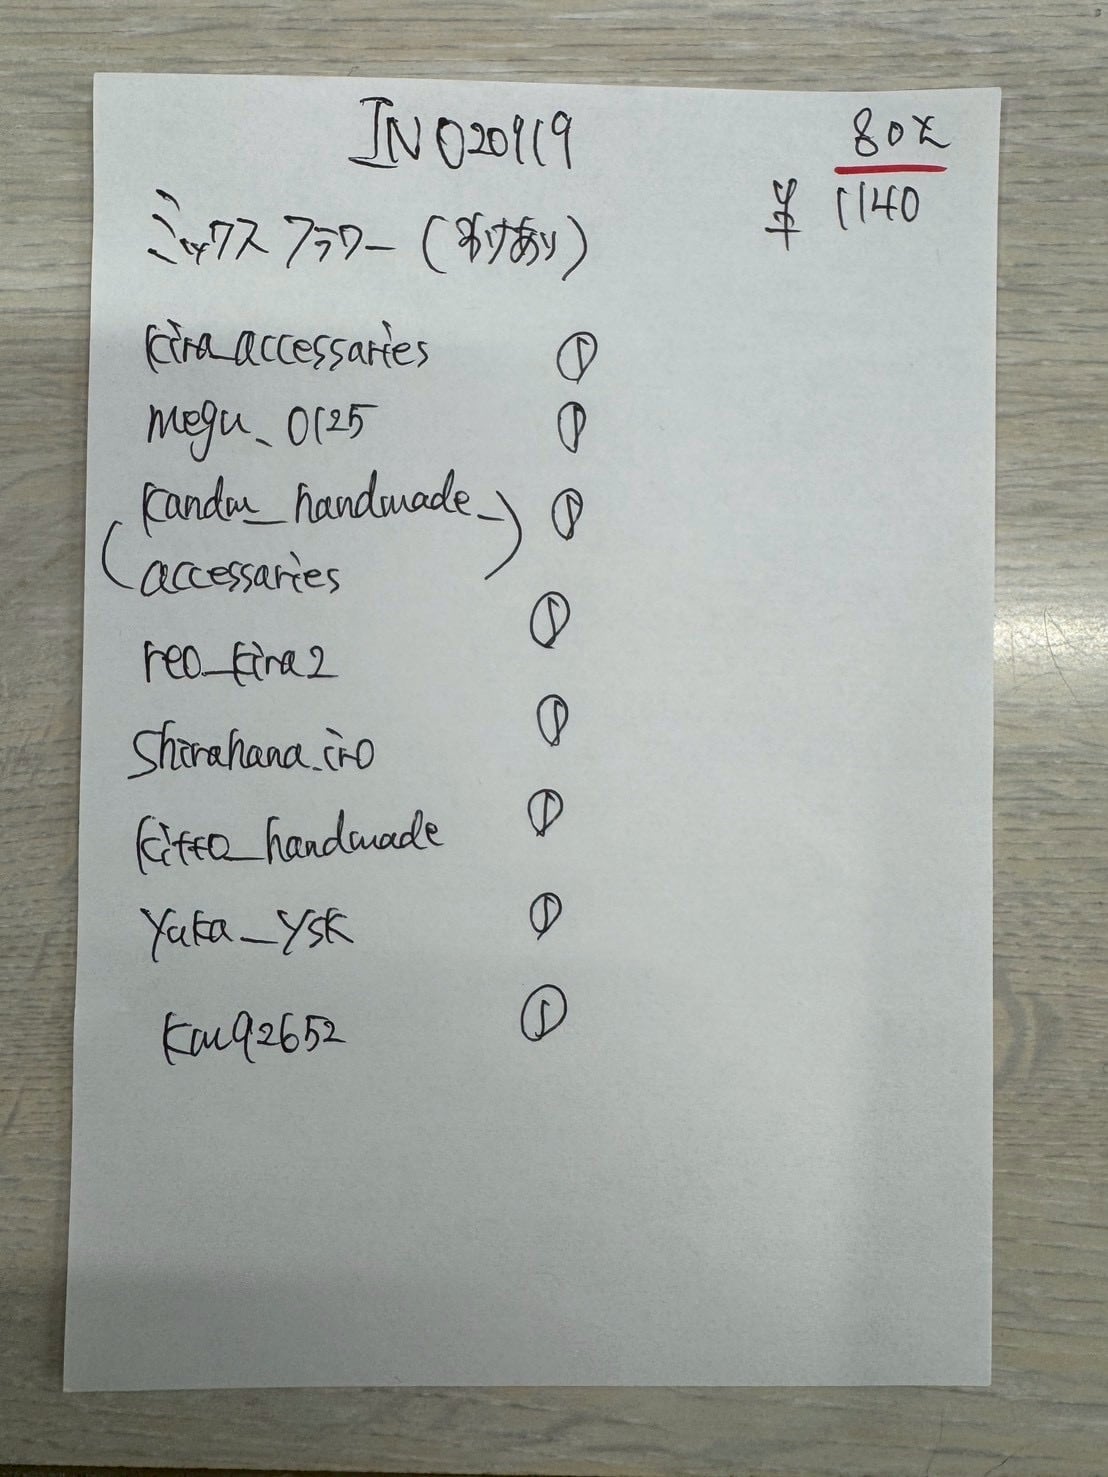 INO20919
80%
ミックスフラワー(わけあり)
¥ 1140
kira_accessaries ①
megu_0125 ①
(kandm_handmade_) ①
accessaries
reo_kira2 ①
shirahana.iro ①
kitto_handmade ①
yuka_ysk ①
kau92652 ①